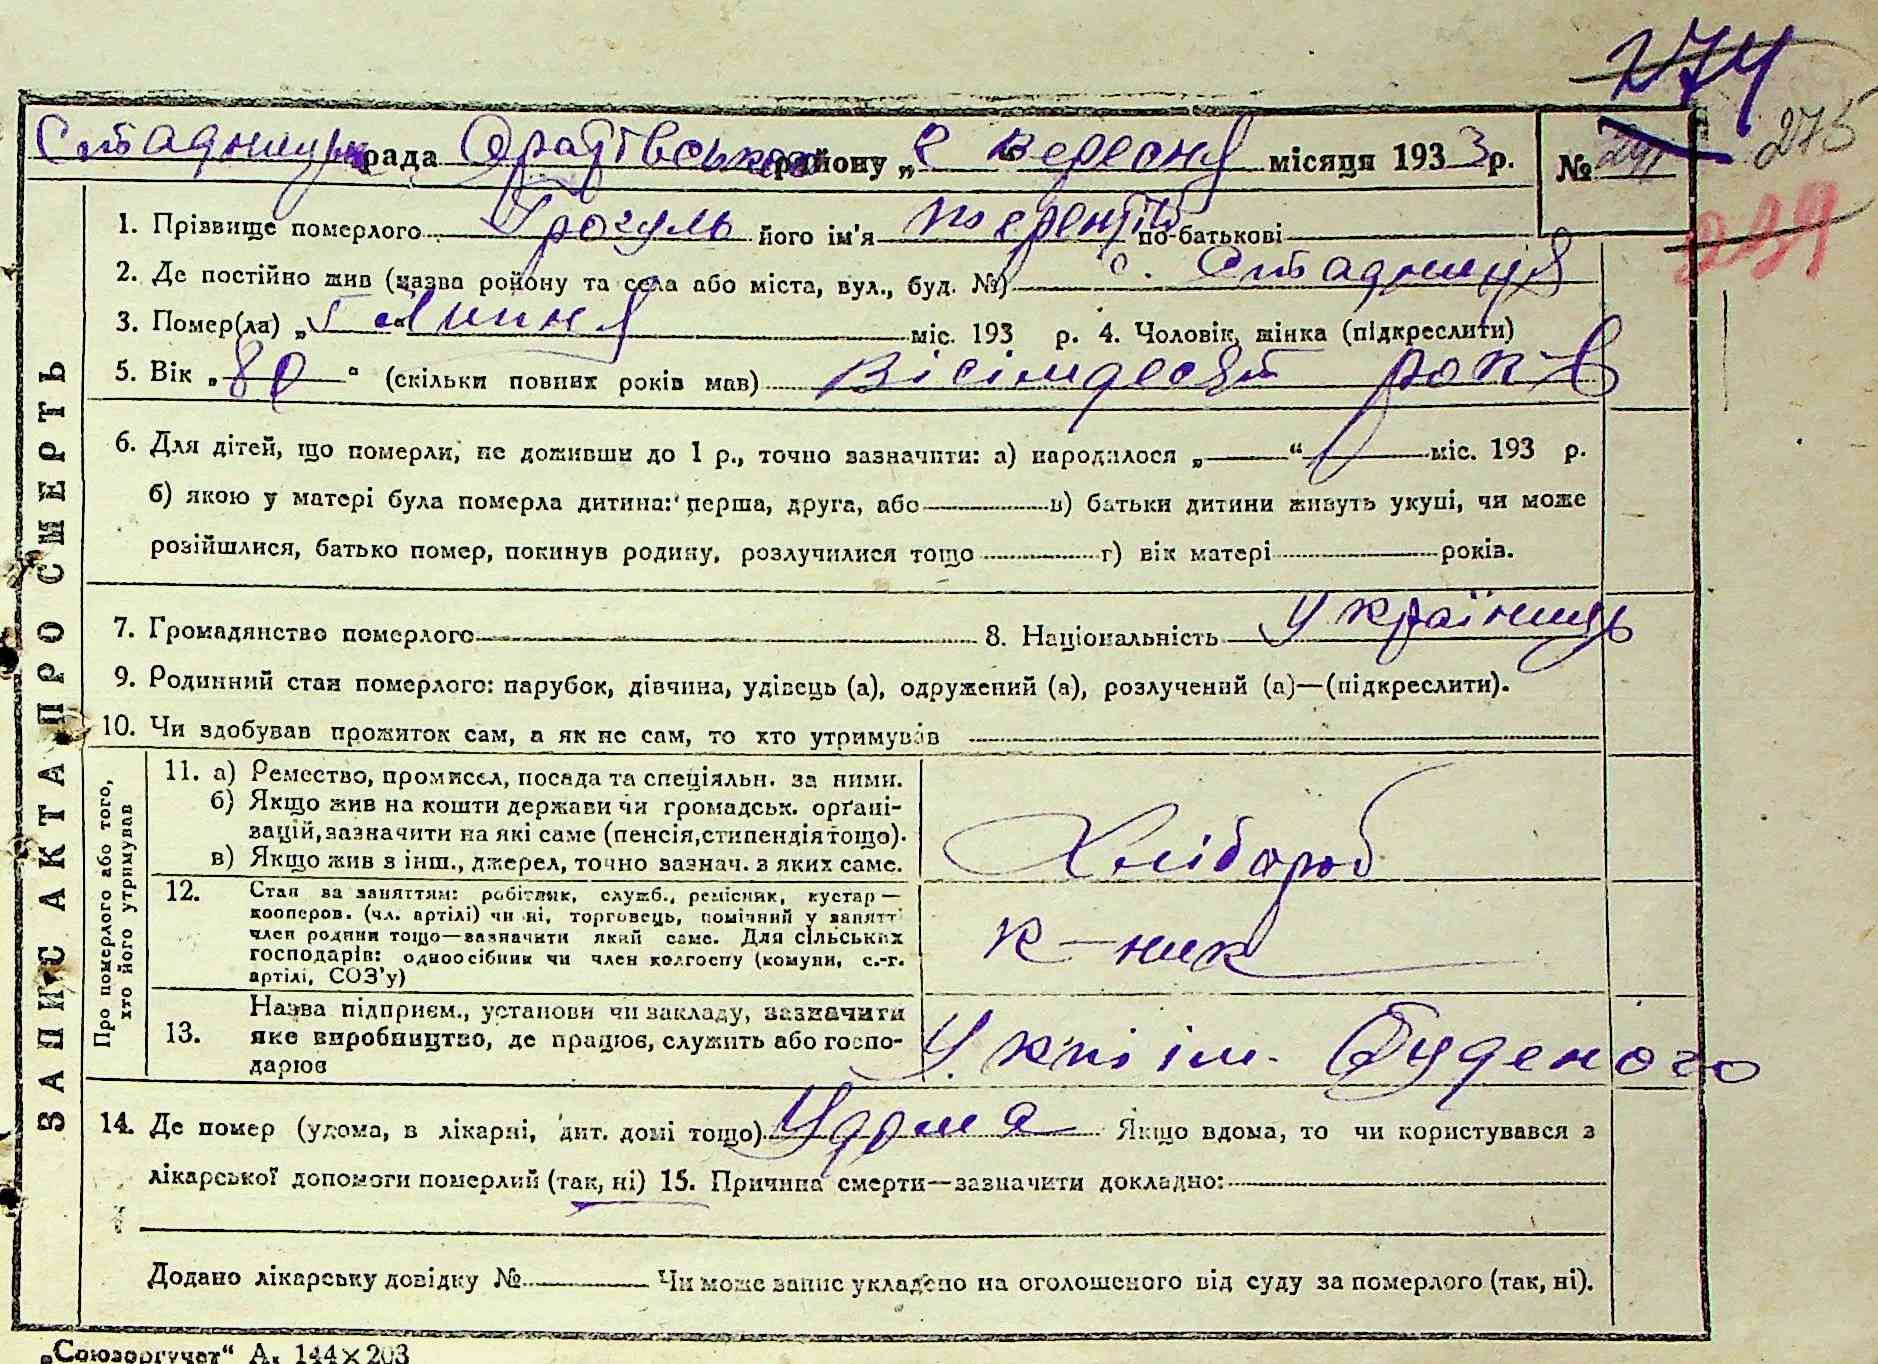 274
275
Стадницька рада Оратівського району „8 " Вересня місяця 1933 р. № 241
239
1. Прізвище померлого Грогуль його ім'я Терентій по-батькові
2. Де постійно жив (назва району та села або міста, вул., буд. №) с. Стадниця
3. Помер(ла) „5 " Липня міс. 193 р. 4. Чоловік, жінка (підкреслити)
5. Вік „80" (скільки повних років мав) Вісімдесят років
6. Для дітей, що померли, не доживши до 1 р., точно зазначити: а) народилося „ “ міс. 193 р.
б) якою у матері була померла дитина: перша, друга, або в) батьки дитини живуть укупі, чи може
розійшлися, батько помер, покинув родину, розлучилися тощо г) вік матері років.
7. Громадянство померлого 8. Національність Українець
9. Родинний стан померлого: парубок, дівчина, удівець (а), одружений (а), розлучений (а)—(підкреслити).
10. Чи здобував прожиток сам, а як не сам, то хто утримував
ЗАПИС АКТА ПРО СМЕРТЬ
Про померлого або того,
хто його утримував
11. а) Ремество, промисел, посада та спеціяльн. за ними.
б) Якщо жив на кошти держави чи громадськ. орґані-
зацій, зазначити на які саме (пенсія, стипендія тощо).
в) Якщо жив з інш., джерел, точно зазнач. з яких саме.
Хлібороб
12. Стан за заняттям: робітник, служб., ремісник, кустар—
кооперов. (чл. артілі) чи ні, торговець, помічний у занятті
член родини тощо—зазначити який саме. Для сільських
господарів: одноосібник чи член колгоспу (комуни, с.-г.
артілі, СОЗ'у)
к-ник
13. Назва підприєм., установи чи закладу, зазначити
яке виробництво, де працює, служить або госпо-
дарює
У кпі ім. Буденого
14. Де помер (удома, в лікарні, дит. домі тощо) Удома Якщо вдома, то чи користувався з
лікарської допомоги померлий (так, ні) 15. Причина смерти—зазначити докладно:
Додано лікарську довідку № Чи може запис укладено на оголошеного від суду за померлого (так, ні).
„Союзоргучет“ А. 144×203